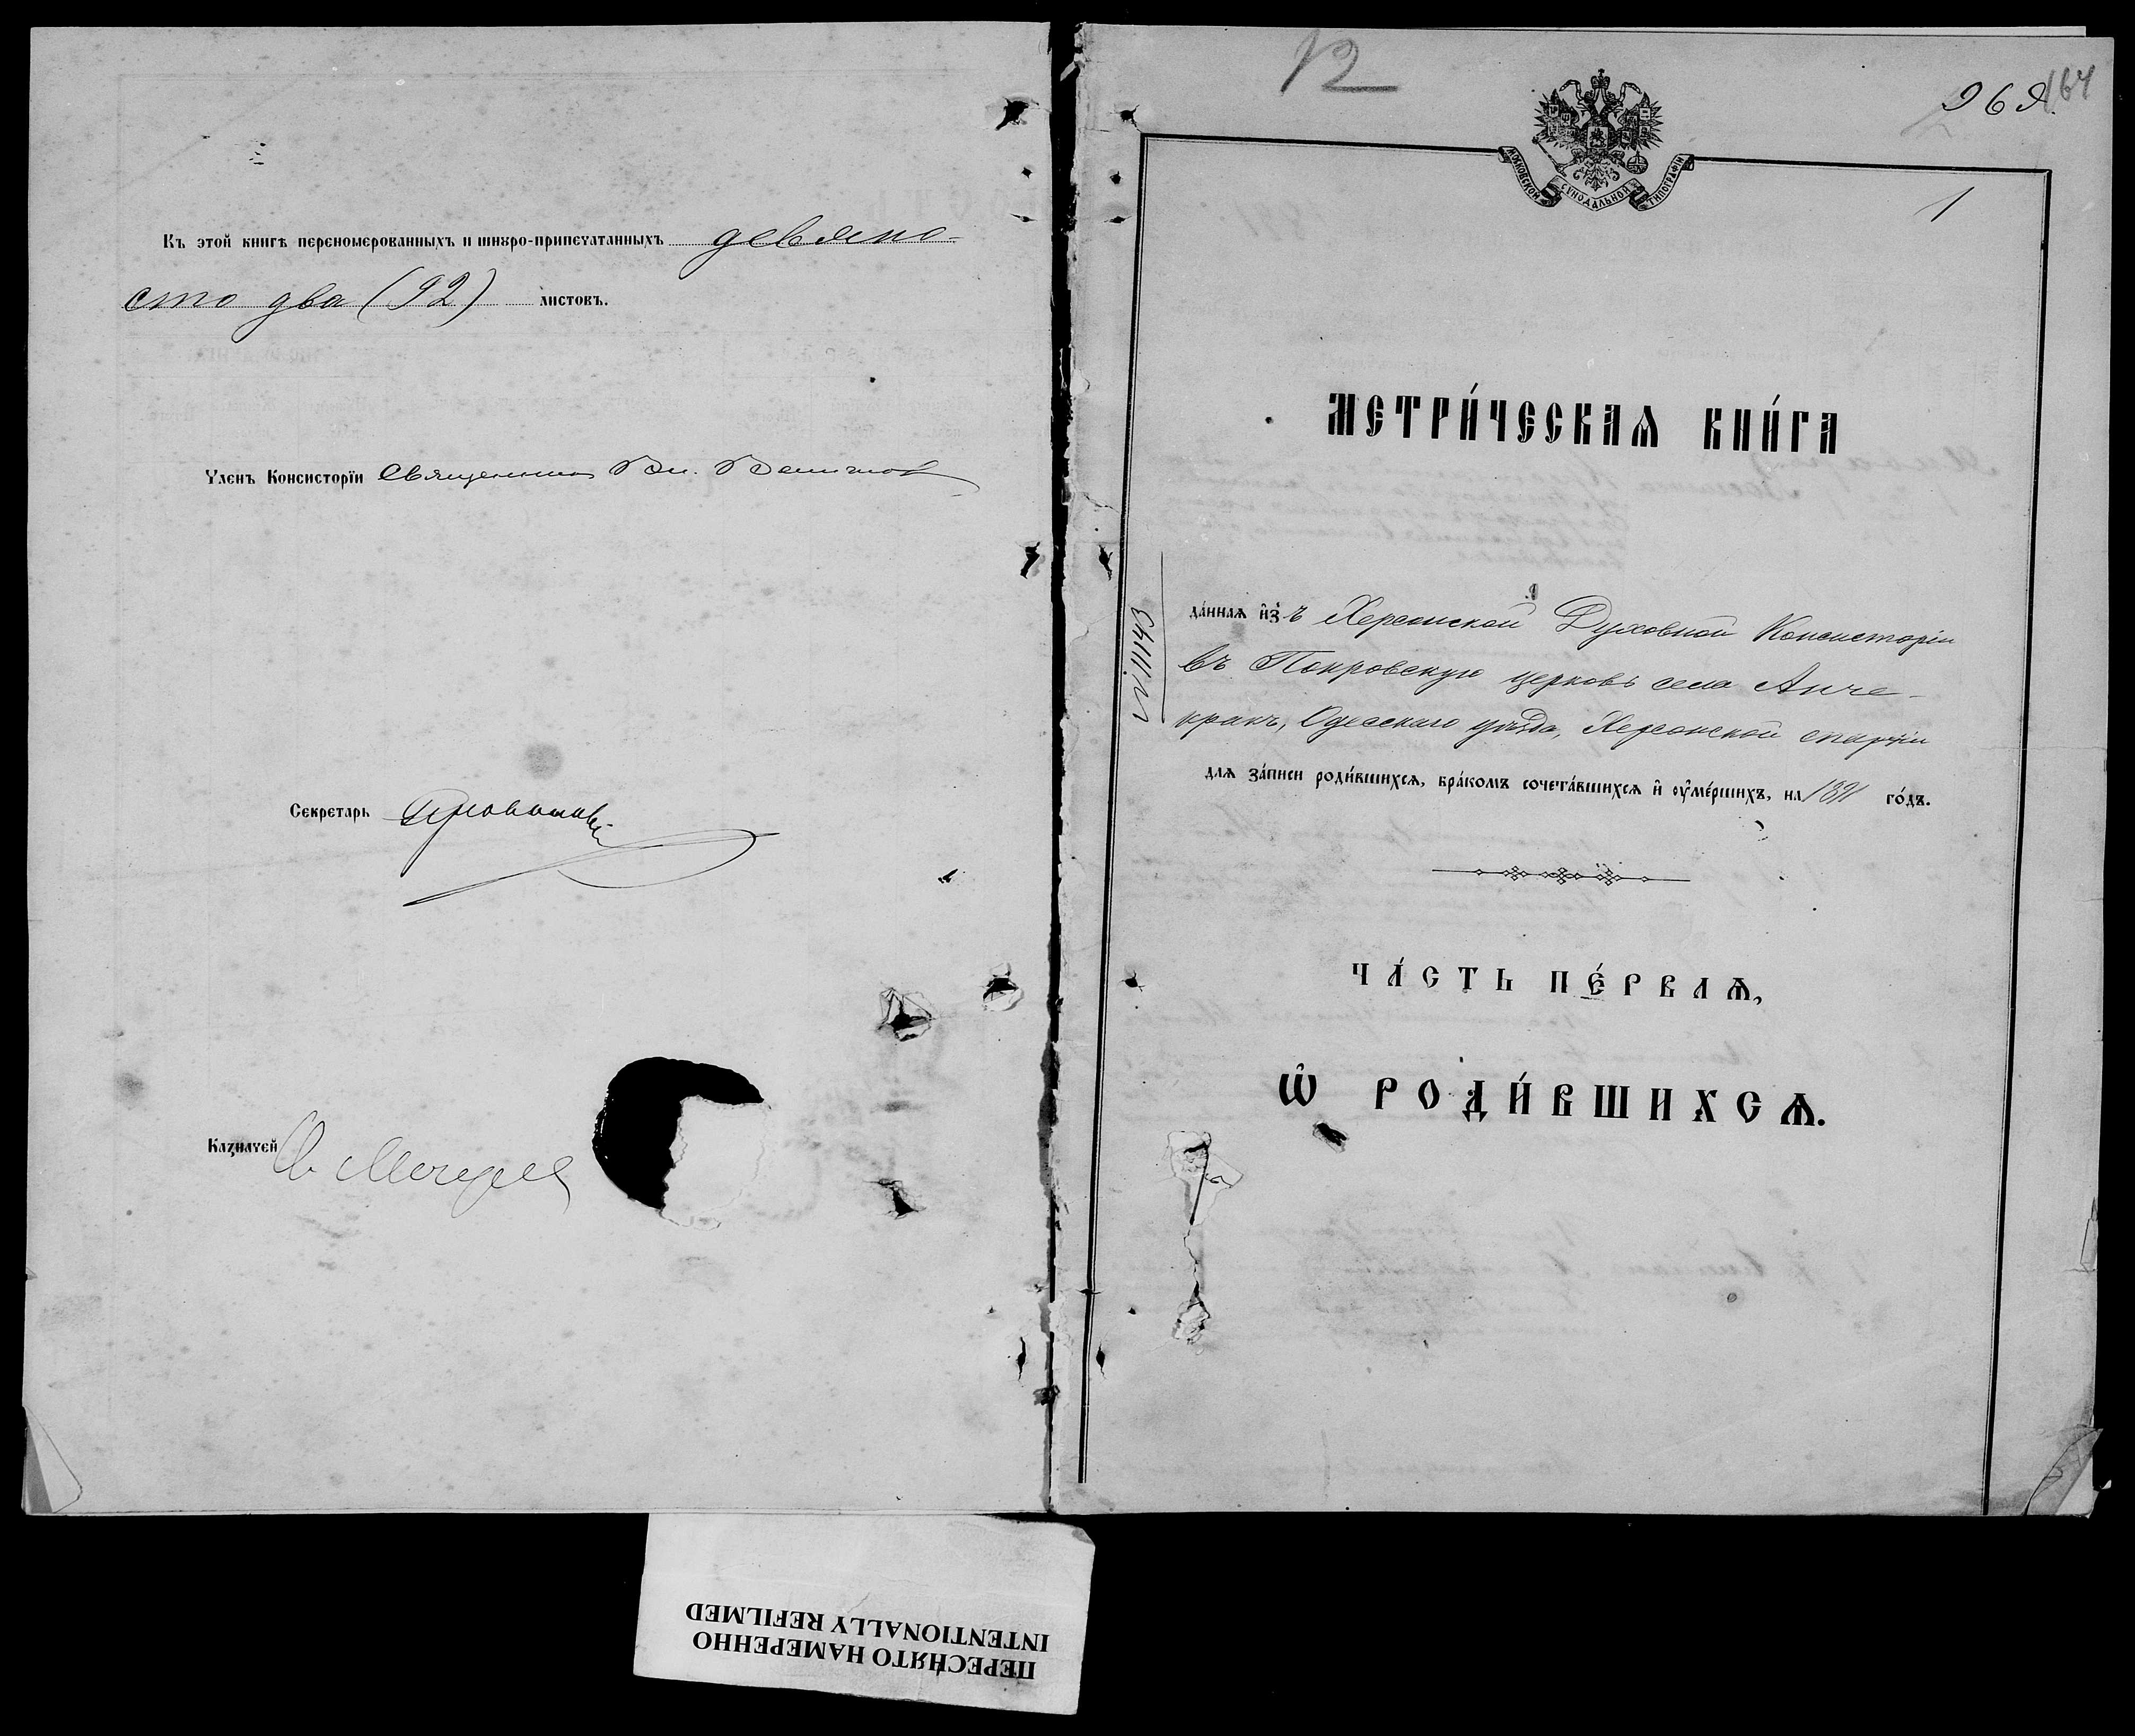 Къ этой книгѣ перенομерованныхъ и шнуро-припечатанныхъ девяно-
сто два (92) листовъ.
Членъ Консисторїи Священникъ Вл.
Секретарь
Казначей
12
164
969
МОСКОВСКОЙ СѴНОДАЛЬНОЙ ТИПОГРАФІИ
1
МЕТРИ́ЧЕСКАѦ КНИ́ГА
№ 11143
да́ннаѧ и҆зъ Херсонской Духовной Консисторіи
въ Покровскую церковь села Анче-
кракъ, Одесскаго уѣзда, Херсонской епархіи
для за́писи роди́вшихсѧ, бра́комъ сочета́вшихсѧ и҆ ᲂу҆ме́ршихъ, на 1891 го́дъ.
ЧА́СТЬ ПЕ́РВАѦ,
Ѽ РОДИ́ВШИХСѦ.
ПЕРЕСНЯТО НАМЕРЕННО
INTENTIONALLY REFILMED